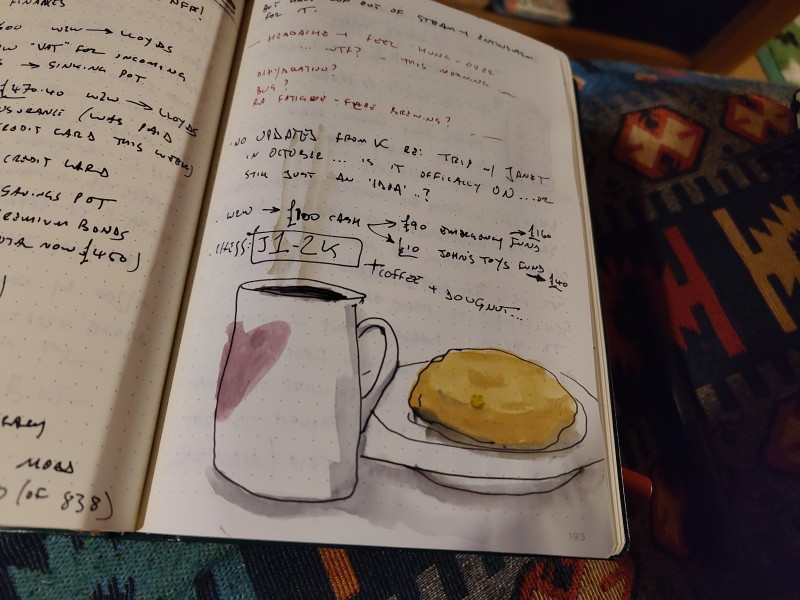 FINANCES
NFF!
W2W → LLOYDS
"VAT" FOR INCOMING
→ SINKING POT
£470.40 W2W → LLOYDS
(WAS PAID
CREDIT CARD THIS WEEK)
CREDIT CARD
SAVINGS POT
PREMIUM BONDS
NOW £450)
MOBD
(OF 838)
OUT OF STEAM +
FOR T.
— HEADACHE + FEEL HUNG-OVER
... WTF? - THIS MORNING
DEHYDRATION?
BUG?
RA FATIGUE - FLARE BREWING?
NO UPDATES FROM VC RE: TRIP W/ JANET
IN OCTOBER ... IS IT OFFICALLY ON ... OR
STILL JUST AN 'IDEA'..?
W2W → £100 CASH → £90 EMERGENCY FUND → £160
→ £10 JOHN'S TOYS FUND → £40
CHESS: J1-2K
+ COFFEE + DOUGNUT...
193